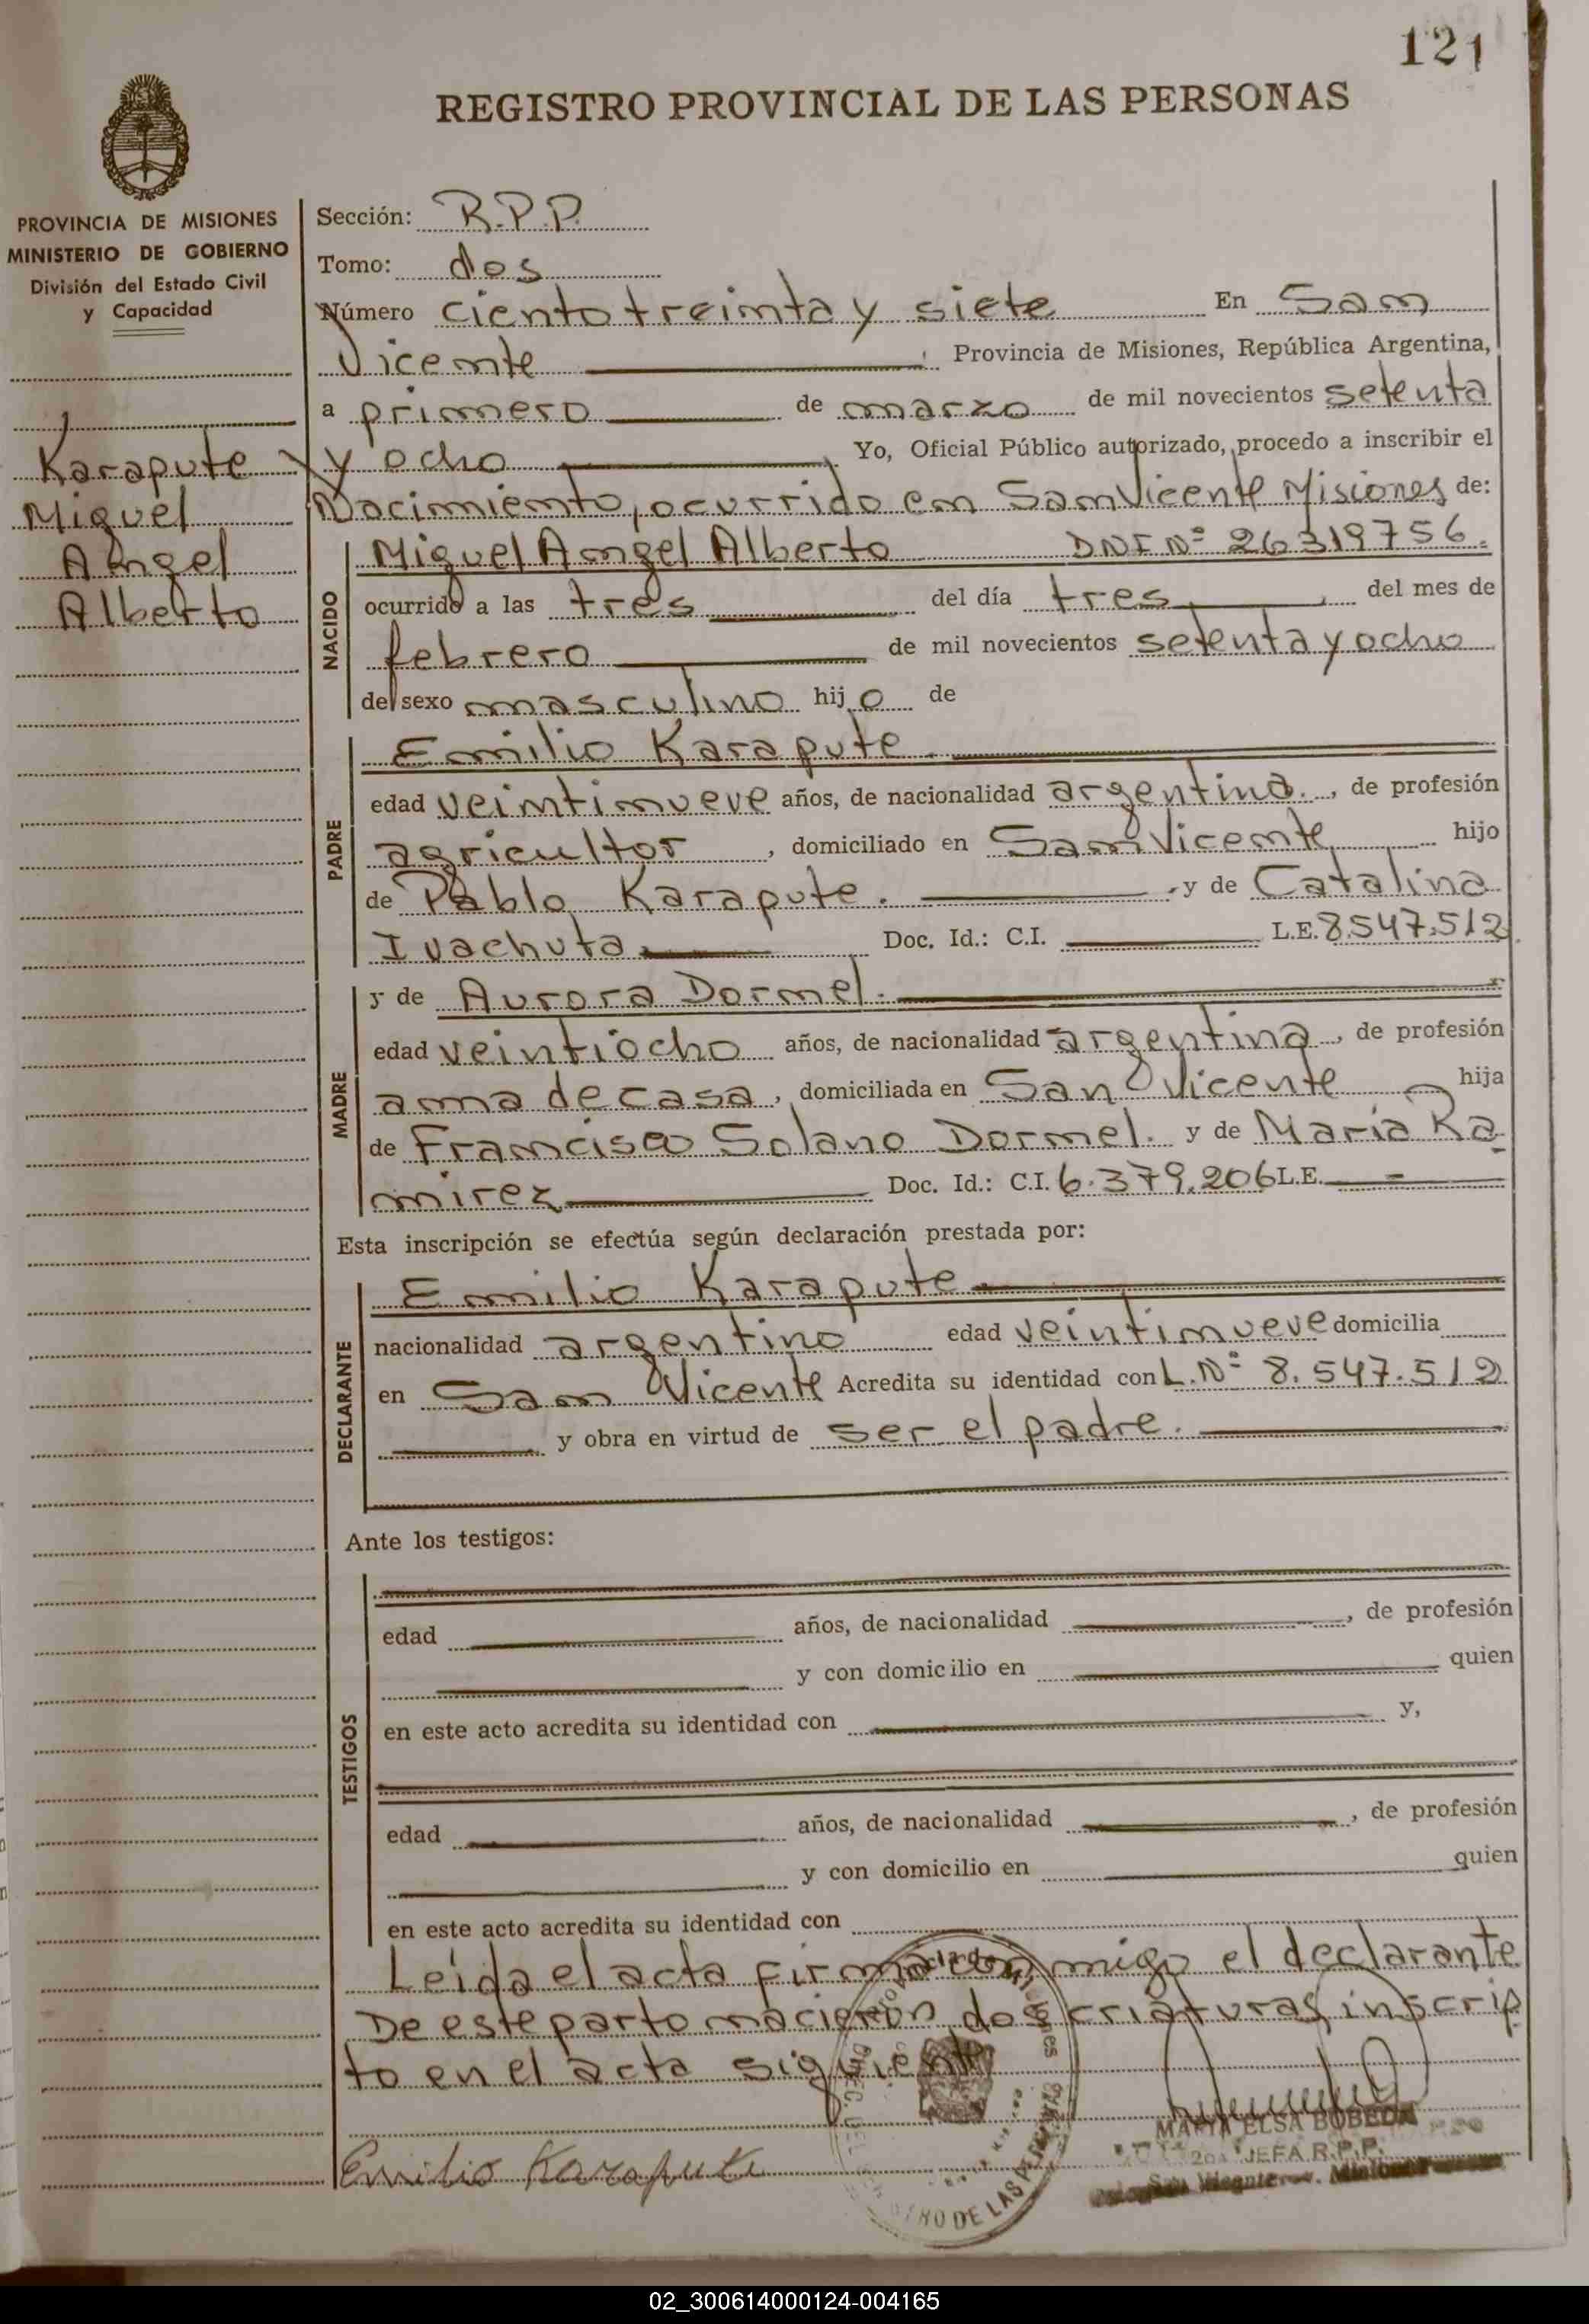 121
REGISTRO PROVINCIAL DE LAS PERSONAS
PROVINCIA DE MISIONES
MINISTERIO DE GOBIERNO
División del Estado Civil
y Capacidad
Karapute
Miguel
Angel
Alberto
Sección: R.P.P.
Tomo: dos
Número ciento treinta y siete En San
Vicente, Provincia de Misiones, República Argentina,
a primero de marzo de mil novecientos setenta
y ocho Yo, Oficial Público autorizado, procedo a inscribir el
Nacimiento, ocurrido en San Vicente Misiones de:
NACIDO
Miguel Angel Alberto DNI Nº 26319756.
ocurrido a las tres del día tres del mes de
febrero de mil novecientos setenta y ocho
del sexo masculino hijo de
PADRE
Emilio Karapute.
edad veintinueve años, de nacionalidad argentina., de profesión
agricultor, domiciliado en San Vicente hijo
de Pablo Karapute. y de Catalina
Ivachuta Doc. Id.: C.I. L.E. 8.547.512
MADRE
y de Aurora Dornel.
edad veintiocho años, de nacionalidad argentina, de profesión
ama de casa, domiciliada en San Vicente hija
de Francisco Solano Dornel. y de María Ra
mirez Doc. Id.: C.I. 6.379.206 L.E.
Esta inscripción se efectúa según declaración prestada por:
DECLARANTE
Emilio Karapute
nacionalidad argentino edad veintinueve domicilia
en San Vicente Acredita su identidad con L.Nº 8.547.512
y obra en virtud de ser el padre.
Ante los testigos:
TESTIGOS
edad años, de nacionalidad , de profesión
y con domicilio en quien
en este acto acredita su identidad con y,
edad años, de nacionalidad , de profesión
y con domicilio en quien
en este acto acredita su identidad con
Leída el acta firma con migo el declarante
De este parto nacieron dos criaturas inscrip
to en el acta siguiente
Emilio Karapute
MARIA ELSA BOBEDA
JEFA R.P.P.
02_300614000124-004165